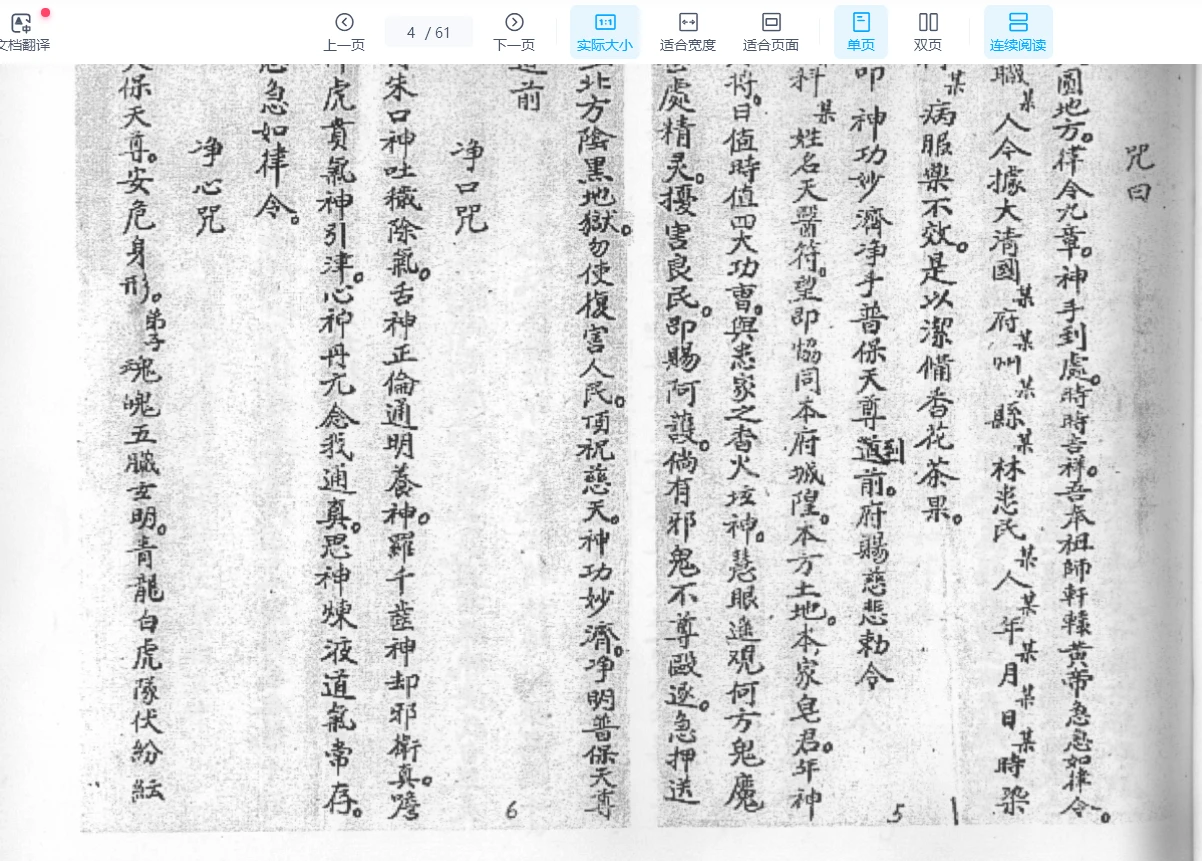 文档翻译
上一页
4 / 61
下一页
实际大小
适合宽度
适合页面
单页
双页
连续阅读
咒曰
圓地方。律令九章。神手到處。時時吉祥。吾奉祖師軒轅黃帝急急如律令。
職某人今據大清國某府某州某縣某林患民某人某年某月某日某時染
某病服藥不效。是以潔備香花茶果。
叩神功妙濟净手普保天尊到道前。府賜慈悲勅令
科某姓名天醫符。望即協同本府城隍。本方土地。本家皂君。年神
月將。日值時值四大功曹。與患家之香火垓神。慧眼進观何方鬼魔
處精灵。擾害良民。即賜阿護。倘有邪鬼不尊毆逐。急押送
5
北方陰黑地獄。勿使復害人民。頂祝慈天。神功妙濟。净明普保天尊
道前
6
净口咒
朱口神吐穢除氣。舌神正倫通明養神。羅千齒神却邪衛真。喉
虎賁氣神引津。心神丹元念我通真。思神煉液道氣常存。
急急如律令。
净心咒
保天尊。安危身形。弟子魂魄五臟玄明。青龍白虎隊伏紛紜